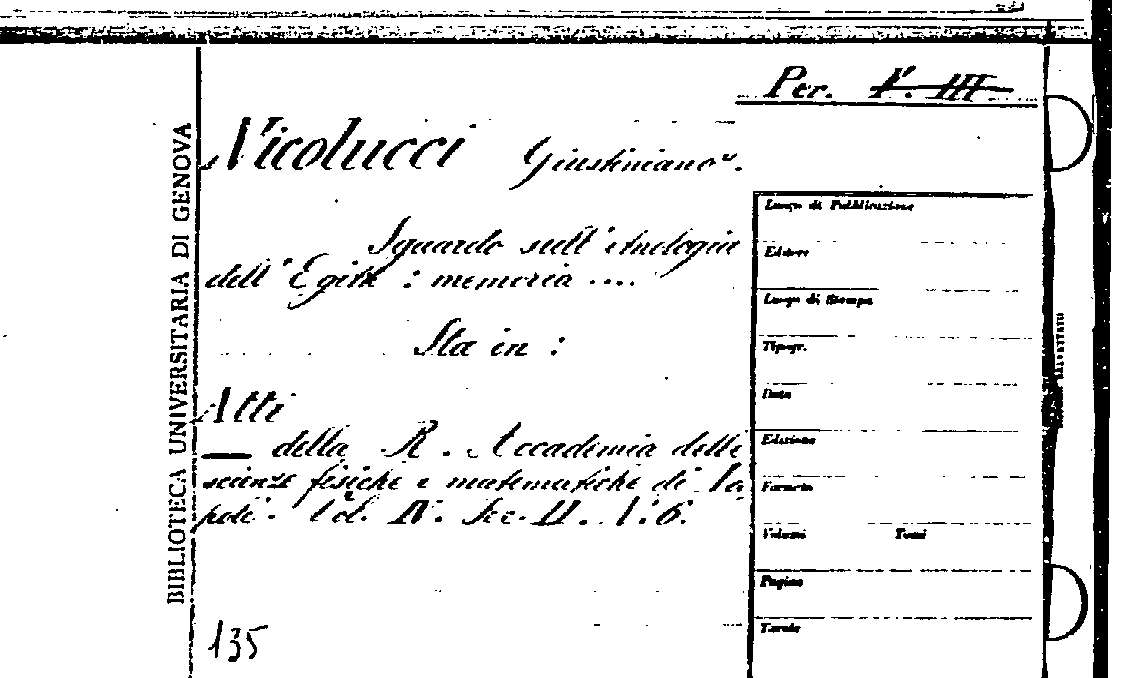 Per. V. III
Nicolucci Giustiniano.
Sguardo sull'etnologia
dell'Egitto : memoria ....
Sta in :
Atti
— della R. Accademia delle
scienze fisiche e matematiche di Na
poli. Vol. IV. Sec. II. N. 6.
135
BIBLIOTECA UNIVERSITARIA DI GENOVA
Luogo di Pubblicazione
Editore
Luogo di Stampa
Tipogr.
Data
Edizione
Formato
Volumi Tomi
Pagine
Tavole